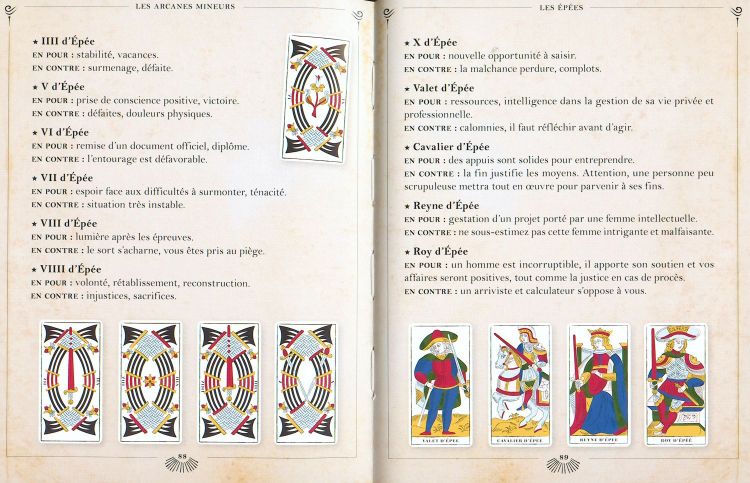 LES ARCANES MINEURS
★ IIII d'Épée
EN POUR : stabilité, vacances.
EN CONTRE : surmenage, défaite.
★ V d'Épée
EN POUR : prise de conscience positive, victoire.
EN CONTRE : défaites, douleurs physiques.
★ VI d'Épée
EN POUR : remise d'un document officiel, diplôme.
EN CONTRE : l'entourage est défavorable.
★ VII d'Épée
EN POUR : espoir face aux difficultés à surmonter, ténacité.
EN CONTRE : situation très instable.
★ VIII d'Épée
EN POUR : lumière après les épreuves.
EN CONTRE : le sort s'acharne, vous êtes pris au piège.
★ VIIII d'Épée
EN POUR : volonté, rétablissement, reconstruction.
EN CONTRE : injustices, sacrifices.
88
LES ÉPÉES
★ X d'Épée
EN POUR : nouvelle opportunité à saisir.
EN CONTRE : la malchance perdure, complots.
★ Valet d'Épée
EN POUR : ressources, intelligence dans la gestion de sa vie privée et
professionnelle.
EN CONTRE : calomnies, il faut réfléchir avant d'agir.
★ Cavalier d'Épée
EN POUR : des appuis sont solides pour entreprendre.
EN CONTRE : la fin justifie les moyens. Attention, une personne peu
scrupuleuse mettra tout en œuvre pour parvenir à ses fins.
★ Reyne d'Épée
EN POUR : gestation d'un projet porté par une femme intellectuelle.
EN CONTRE : ne sous-estimez pas cette femme intrigante et malfaisante.
★ Roy d'Épée
EN POUR : un homme est incorruptible, il apporte son soutien et vos
affaires seront positives, tout comme la justice en cas de procès.
EN CONTRE : un arriviste et calculateur s'oppose à vous.
VALET D'ÉPÉE
CAVALIER D'ÉPÉE
REYNE D'ÉPÉE
ROY D'ÉPÉE
89